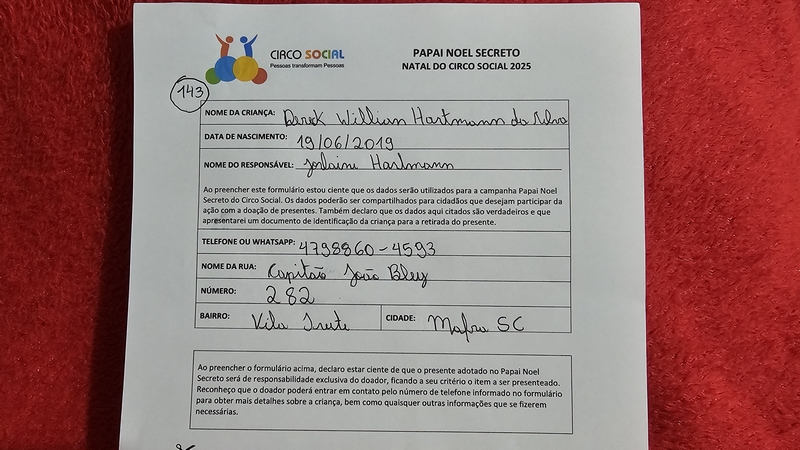 CIRCO SOCIAL
Pessoas transformam Pessoas
PAPAI NOEL SECRETO
NATAL DO CIRCO SOCIAL 2025
143
NOME DA CRIANÇA: Derek Willian Hartmann da Silva
DATA DE NASCIMENTO: 19/06/2019
NOME DO RESPONSÁVEL: Joslaini Hartmann
Ao preencher este formulário estou ciente que os dados serão utilizados para a campanha Papai Noel
Secreto do Circo Social. Os dados poderão ser compartilhados para cidadãos que desejam participar da
ação com a doação de presentes. Também declaro que os dados aqui citados são verdadeiros e que
apresentarei um documento de identificação da criança para a retirada do presente.
TELEFONE OU WHATSAPP: 4798860-4593
NOME DA RUA: Capitão João Bley
NÚMERO: 282
BAIRRO: Vila Ivete CIDADE: Mafra SC
Ao preencher o formulário acima, declaro estar ciente de que o presente adotado no Papai Noel
Secreto será de responsabilidade exclusiva do doador, ficando a seu critério o item a ser presenteado.
Reconheço que o doador poderá entrar em contato pelo número de telefone informado no formulário
para obter mais detalhes sobre a criança, bem como quaisquer outras informações que se fizerem
necessárias.